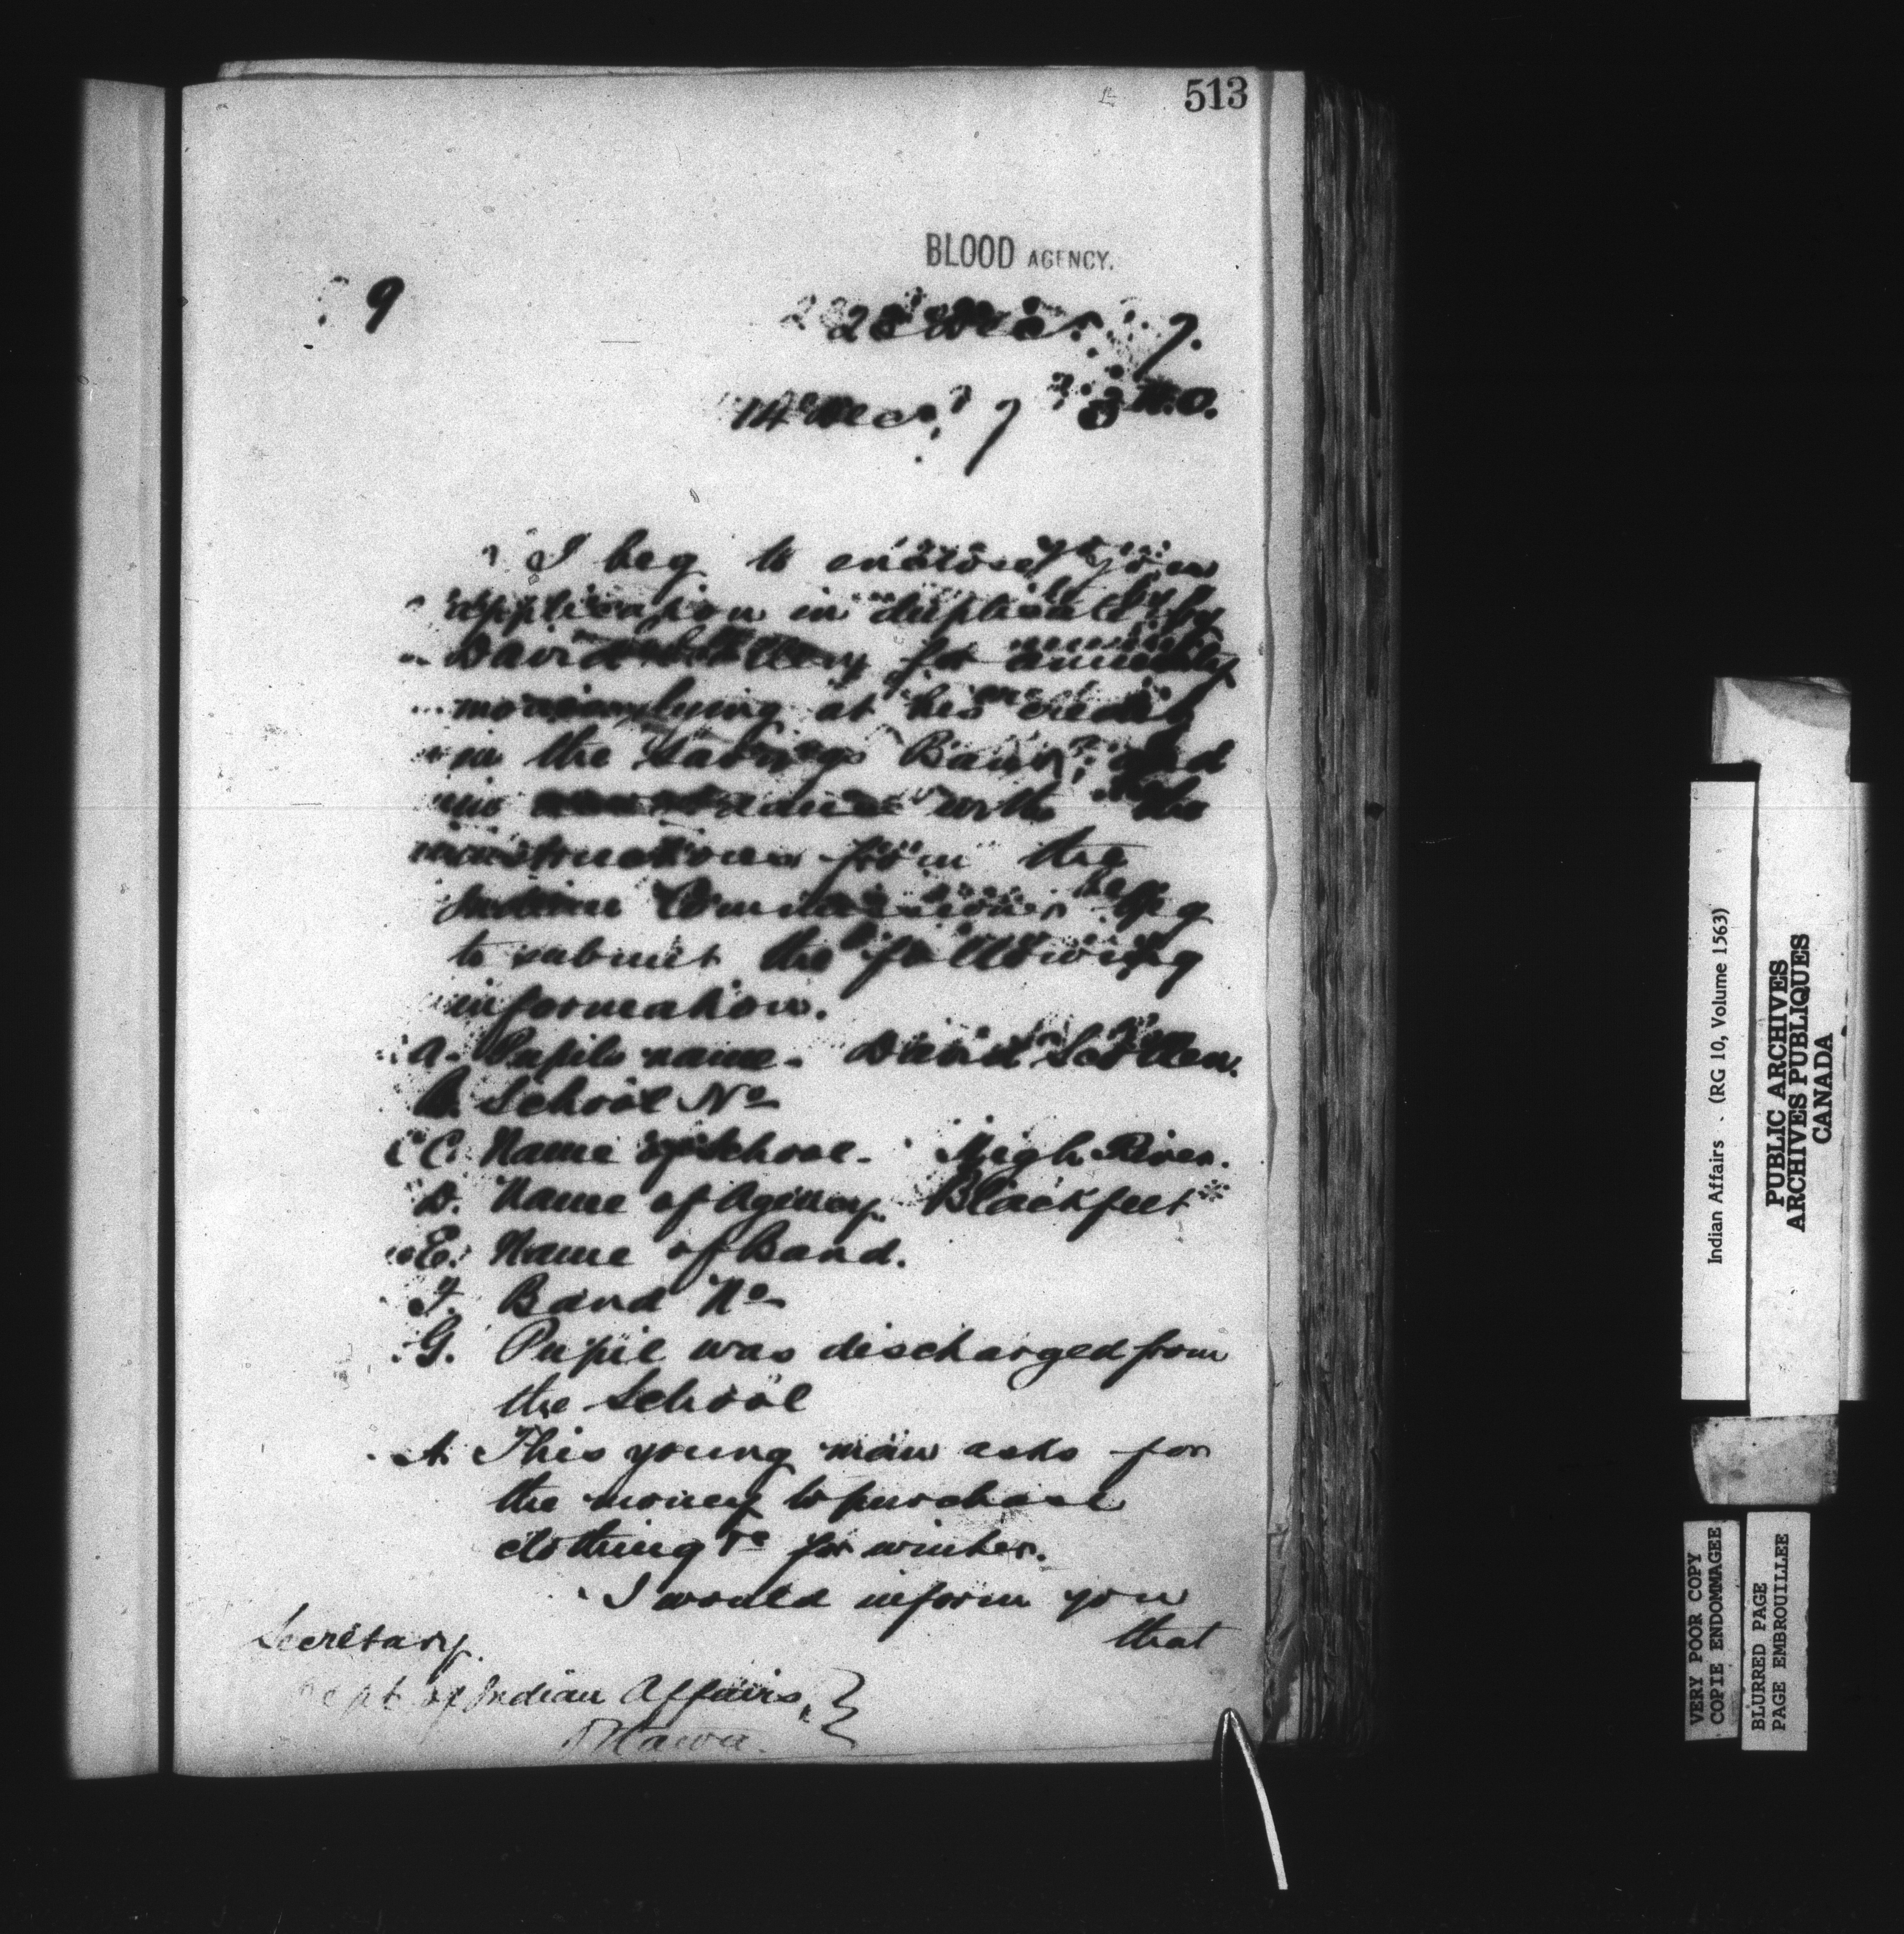 513
BLOOD AGENCY.
9
23 Dec. 7.
14 Dec. 7
I beg to enclose you
application in duplicate by
David for annuity
lying at his credit
in the Savings Bank, and
in accordance with the
instructions from the
Indian Commissioner beg
to submit the following
information.
A. Pupils name. David
B. School No
C. Name of School. High River.
D. Name of Agency. Blackfeet
E. Name of Band.
F. Band No
G. Pupil was discharged from
the School
This young man asks for
the money to purchase
clothing &c for winter.
I would inform you
that
Secretary.
Dept of Indian Affairs, }
Ottawa.
Indian Affairs . (RG 10, Volume 1563)
PUBLIC ARCHIVES
ARCHIVES PUBLIQUES
CANADA
VERY POOR COPY
COPIE ENDOMMAGEE
BLURRED PAGE
PAGE EMBROUILLEE